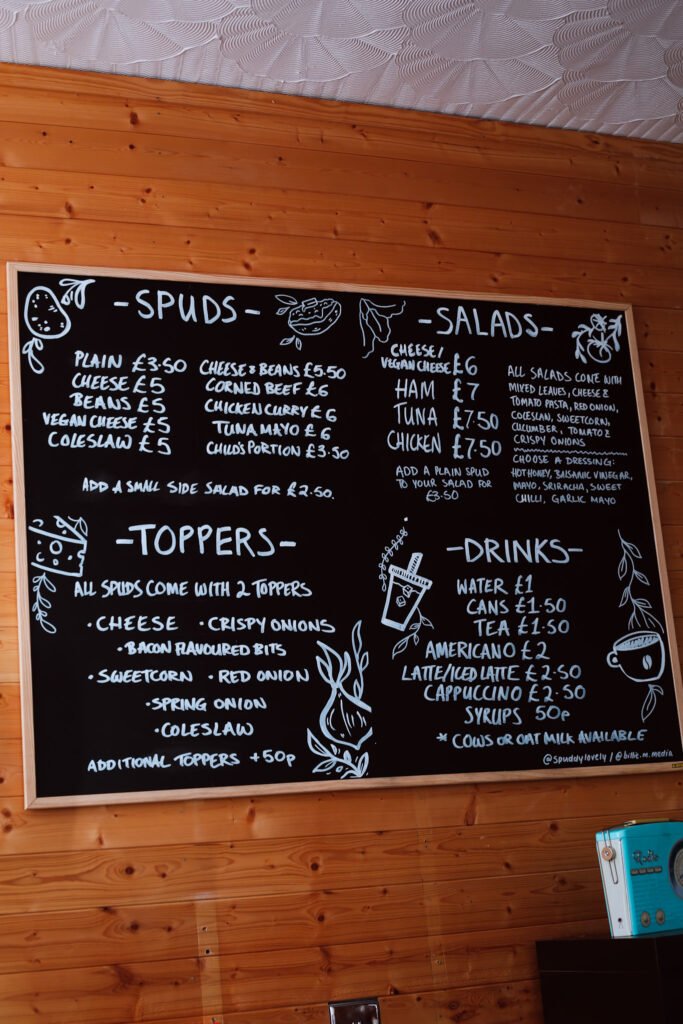 -SPUDS-
PLAIN £3.50
CHEESE £5
BEANS £5
VEGAN CHEESE £5
COLESLAW £5
CHEESE & BEANS £5.50
CORNED BEEF £6
CHICKEN CURRY £6
TUNA MAYO £6
CHILD'S PORTION £3.50
ADD A SMALL SIDE SALAD FOR £2.50.
-SALADS-
CHEESE/
VEGAN CHEESE £6
HAM £7
TUNA £7.50
CHICKEN £7.50
ADD A PLAIN SPUD
TO YOUR SALAD FOR
£3.50
ALL SALADS COME WITH
MIXED LEAVES, CHEESE &
TOMATO PASTA, RED ONION,
COLESLAW, SWEETCORN,
CUCUMBER, TOMATO &
CRISPY ONIONS
CHOOSE A DRESSING:
HOT HONEY, BALSAMIC VINEGAR,
MAYO, SRIRACHA, SWEET
CHILLI, GARLIC MAYO
-TOPPERS-
ALL SPUDS COME WITH 2 TOPPERS
·CHEESE ·CRISPY ONIONS
·BACON FLAVOURED BITS
·SWEETCORN ·RED ONION
·SPRING ONION
·COLESLAW
ADDITIONAL TOPPERS +50p
-DRINKS-
WATER £1
CANS £1.50
TEA £1.50
AMERICANO £2
LATTE/ICED LATTE £2.50
CAPPUCCINO £2.50
SYRUPS 50p
* COWS OR OAT MILK AVAILABLE
@spuddylovely / @billie.m.media